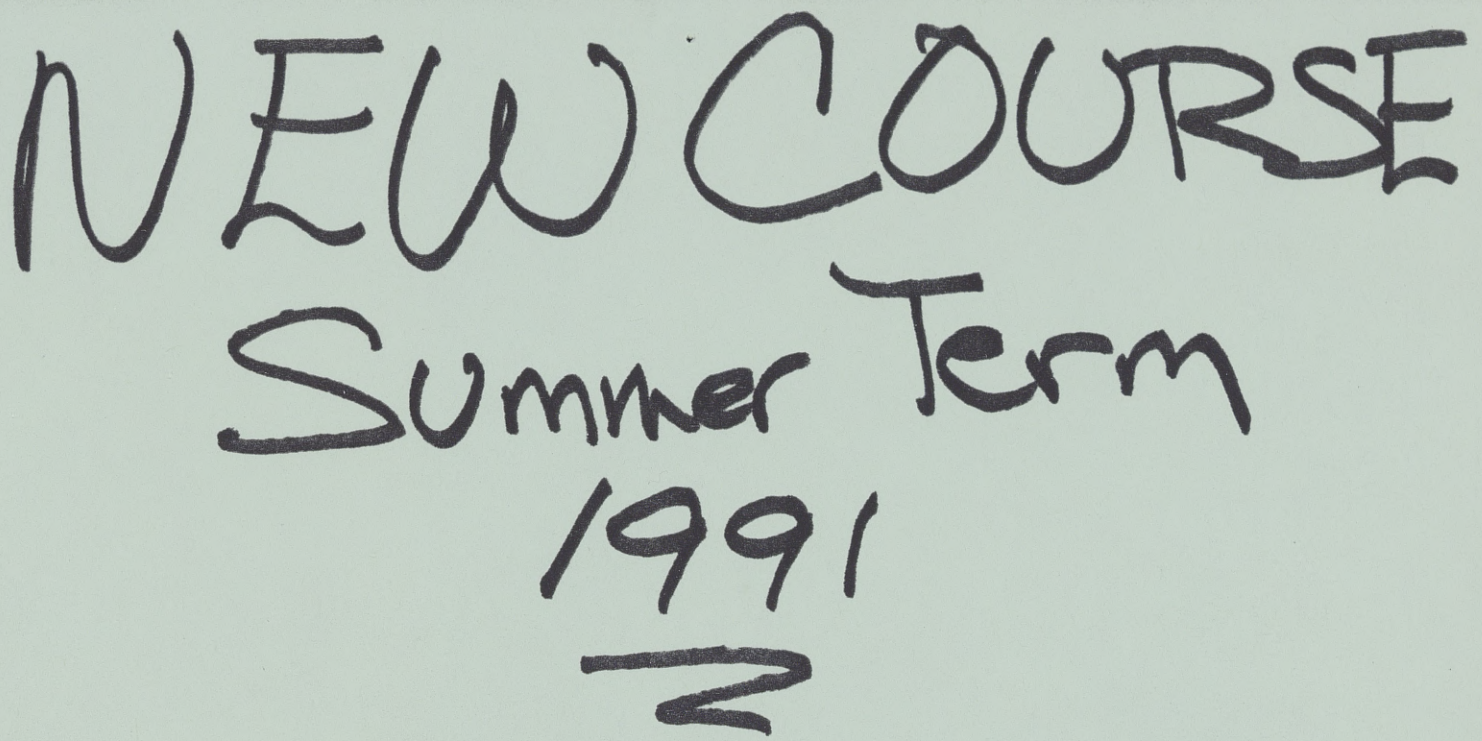 NEW COURSE
Summer Term
1991